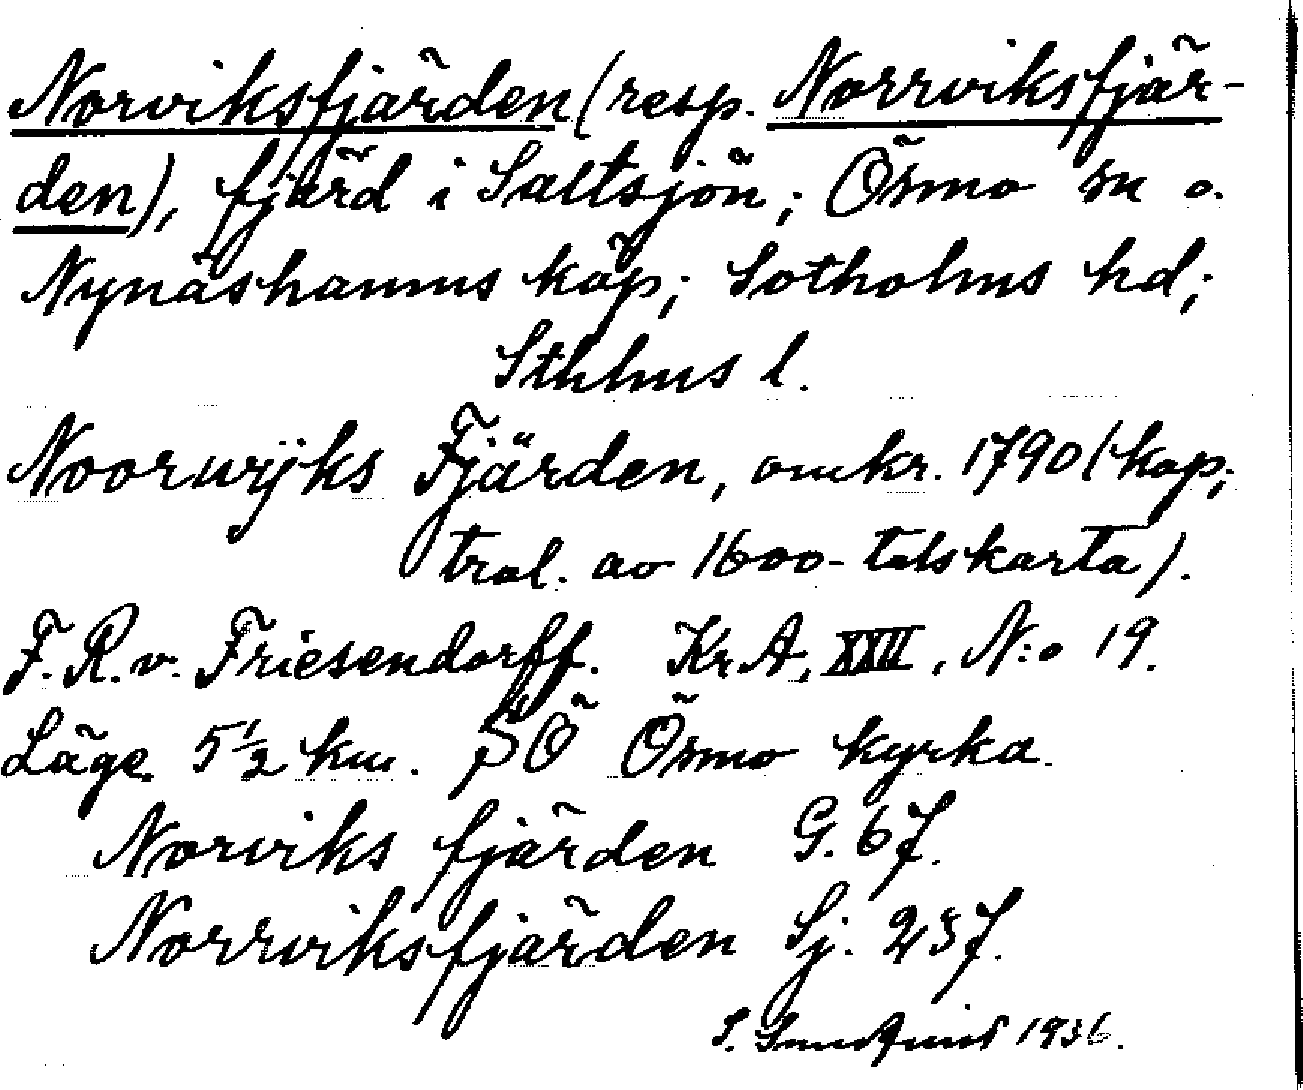 Norviksfjärden (resp. Norrviksfjär-
den), fjärd i Saltsjön; Ösmo sn o.
Nynäshamns köp; Sotholms hd;
Sthlms l.
Noorwijks Fjärden, omkr. 1790 (kop;
trol. av 1600-talskarta).
F. R. v. Friesendorff. Kr. A, XXII, N:o 19.
Läge 5 1/2 km. SÖ Ösmo kyrka.
Norviks fjärden G. 67.
Norrviksfjärden Sj. 237.
S. 1936.